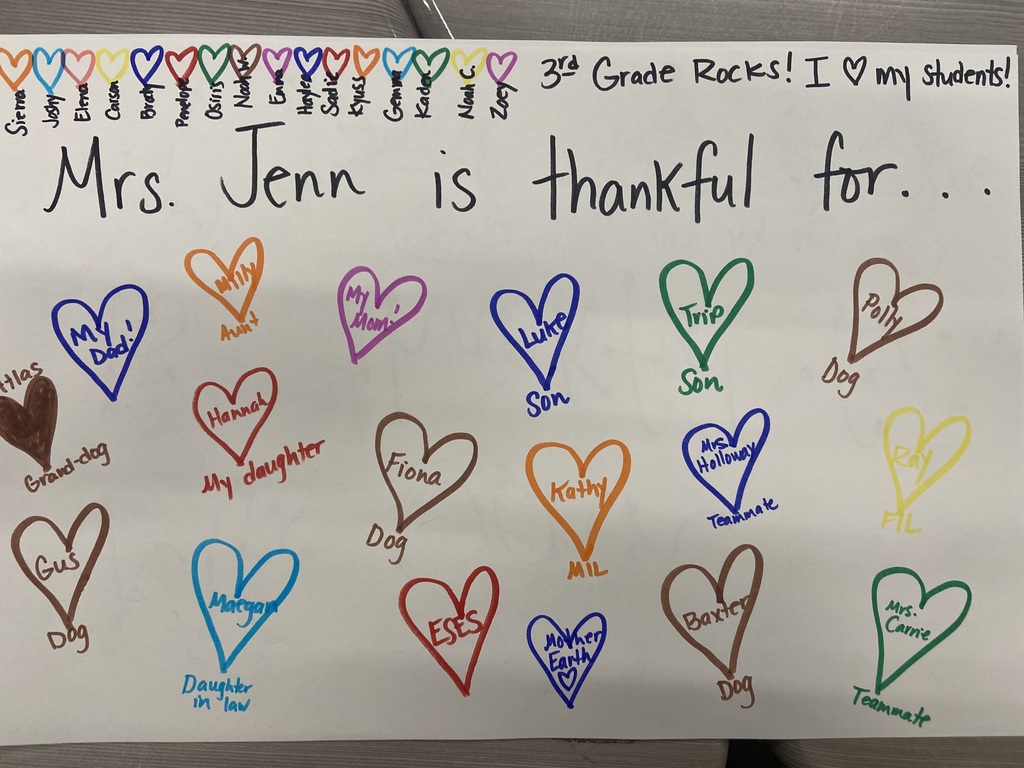 Sierra Joshy Elena Caron Brody Penelope Osiris Noah H. Emma Haylee Sadie Kyus Gemma Kaden Noah C. Zoey
3rd Grade Rocks! I ♡ my students!
Mrs. Jenn is thankful for...
My
Dad!
Milly
Aunt
My
Mom!
Luke
Son
Trip
Son
Polly
Dog
Grand-dog
Hannah
My daughter
Fiona
Dog
Kathy
MIL
Mrs.
Holloway
Teammate
Ray
FIL
Gus
Dog
Maegan
Daughter
in law
ESES
Mother
Earth
Baxter
Dog
Mrs.
Carrie
Teammate